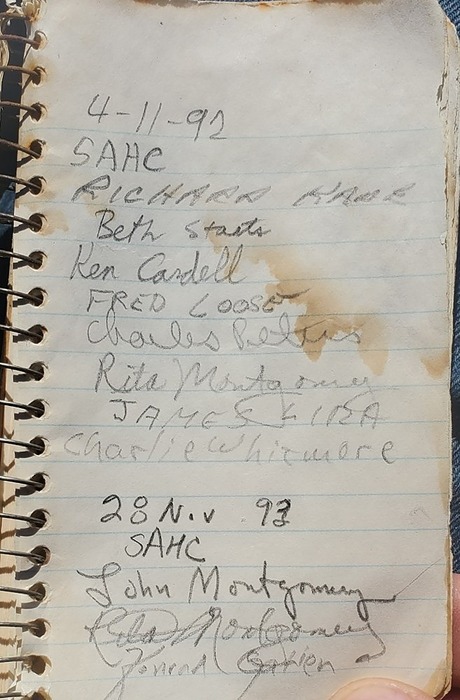 4-11-92
SAHC
RICHARD KANE
Beth Staats
Ken Cardell
FRED LOOSE
Charles
Rita Montgomery
JAMES
Charlie Whitmore
28 Nov 93
SAHC
John Montgomery
Rita Montgomery